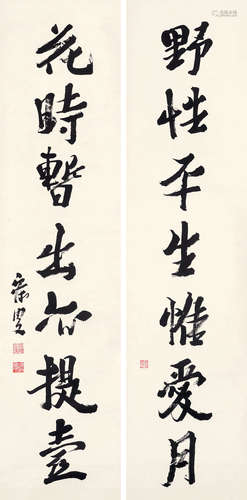 野性平生惟愛月
花時暫出亦提壺